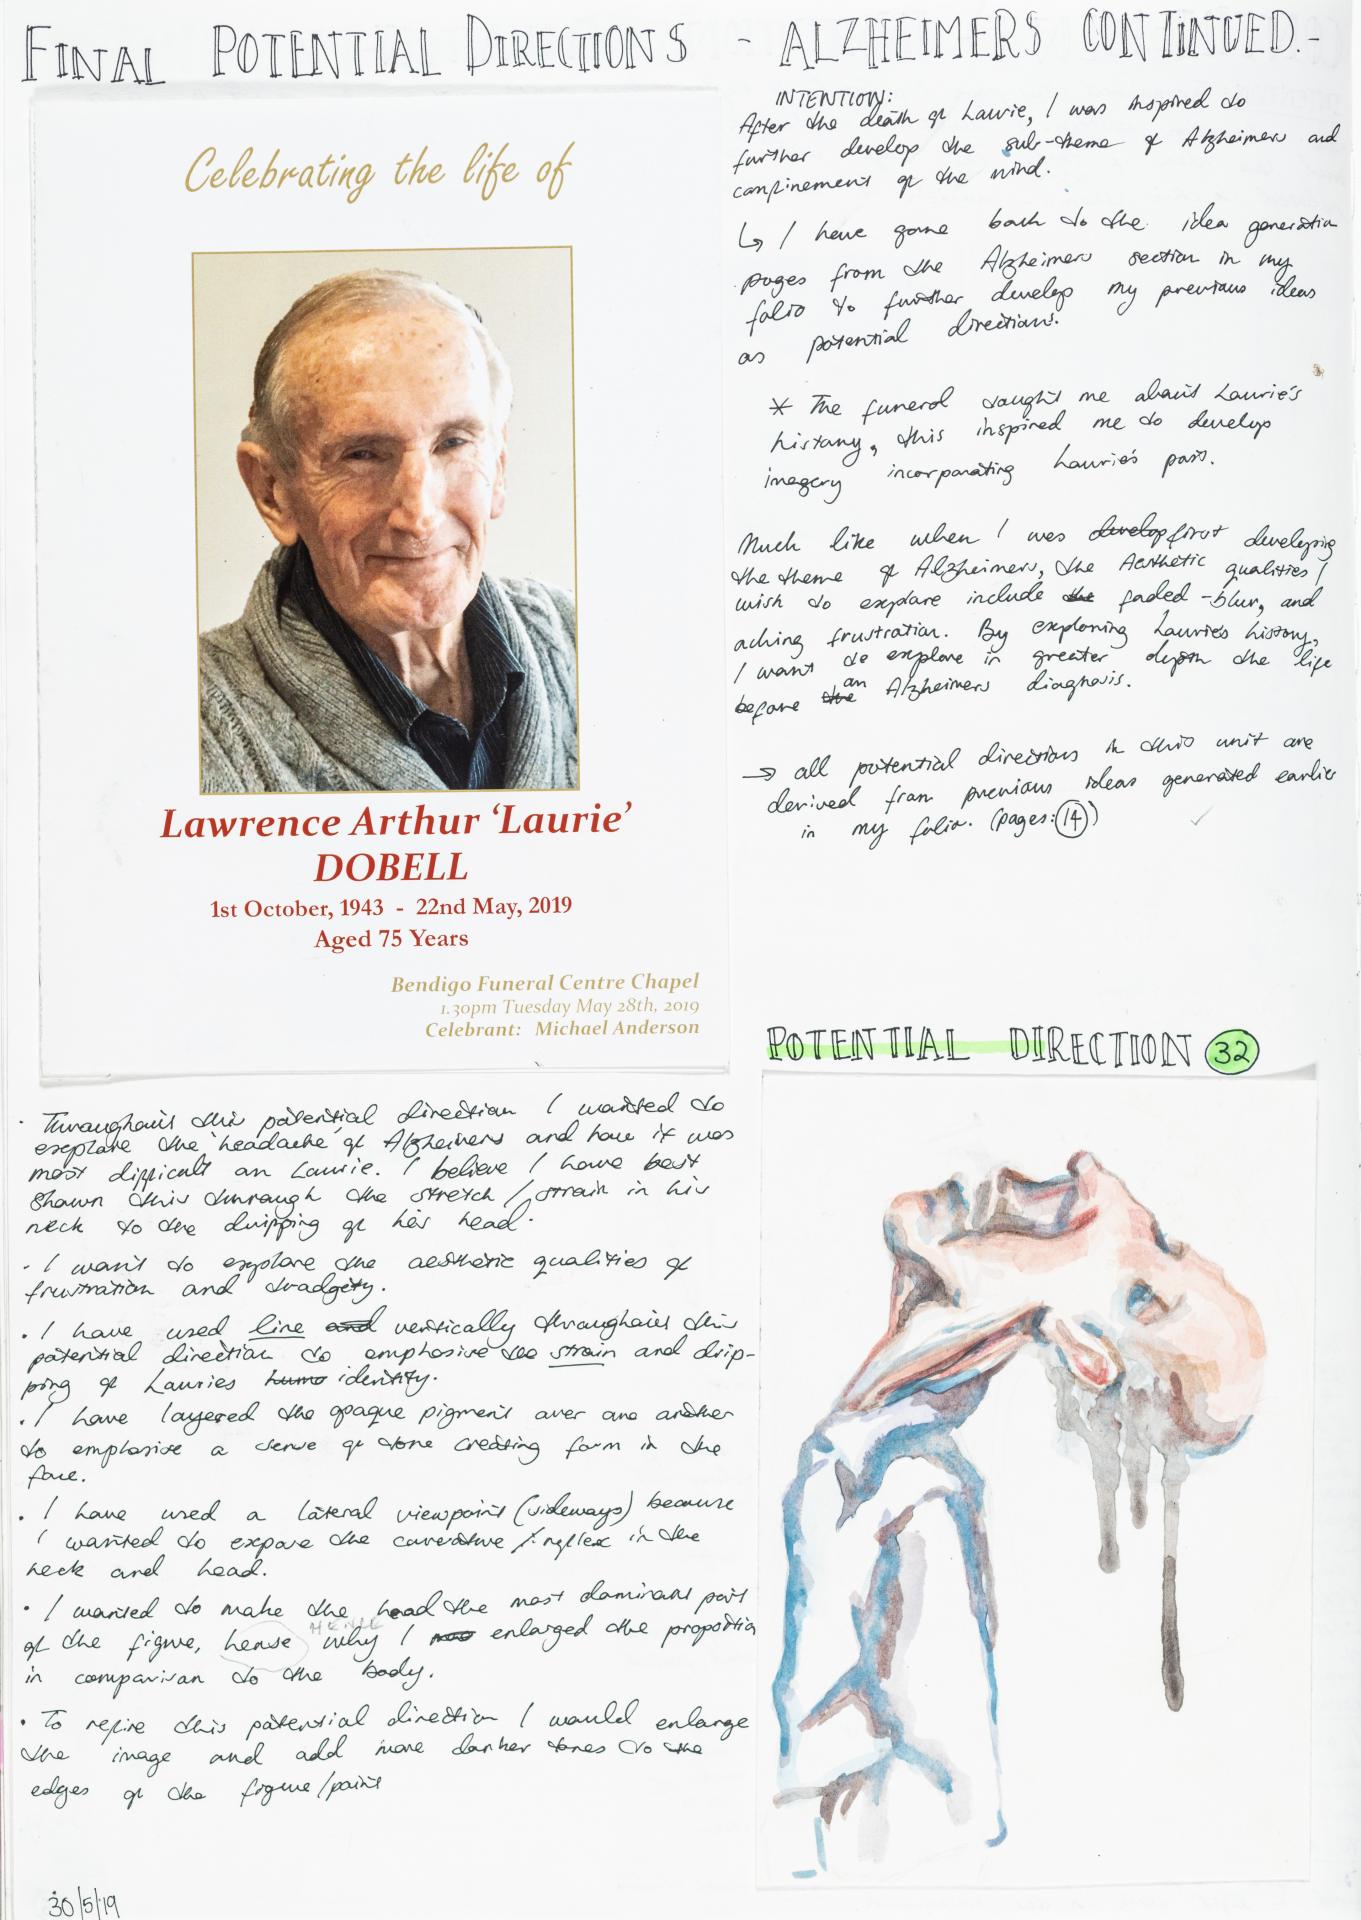 FINAL POTENTIAL DIRECTIONS - ALZHEIMERS CONTINUED.-
Celebrating the life of
Lawrence Arthur ‘Laurie’
DOBELL
1st October, 1943 - 22nd May, 2019
Aged 75 Years
Bendigo Funeral Centre Chapel
1.30pm Tuesday May 28th, 2019
Celebrant: Michael Anderson
INTENTION:
After the death of Laurie, I was inspired to
further develop the sub-theme of Alzheimers and
confinement of the mind.
↳ I have gone back to the idea generation
pages from the Alzheimers section in my
folio to further develop my previous ideas
as potential directions.
* The funeral taught me about Laurie's
history, this inspired me to develop
imagery incorporating Laurie's past.
Much like when I was develop first developing
the theme of Alzheimers, the Aesthetic qualities I
wish to explore include the faded -blur, and
aching frustration. By exploring Laurie's history,
I want to explore in greater depth the life
before the an Alzheimers diagnosis.
→ all potential directions in this unit are
derived from previous ideas generated earlier
in my folio. (pages: 14)
POTENTIAL DIRECTION 32
· Throughout this potential direction I wanted to
explore the 'headache' of Alzheimers and how it was
most difficult on Laurie. I believe I have best
shown this through the stretch / strain in his
neck to the dripping of his head.
- I want to explore the aesthetic qualities of
frustration and tradgety.
· I have used line and vertically throughout this
potential direction to emphasise the strain and drip-
ping of Lauries identity.
· I have layered the opaque pigment over one another
to emphasise a sense of tone creating form in the
face.
· I have used a lateral viewpoint (sideways) because
I wanted to expose the curvature / in the
neck and head.
· I wanted to make the head the most dominant part
of the figure, hense HENCE why I enlarged the proportion
in comparison to the body.
· To refine this potential direction I would enlarge
the image and add more darker tones to the
edges of the figure/paint
30/5/19